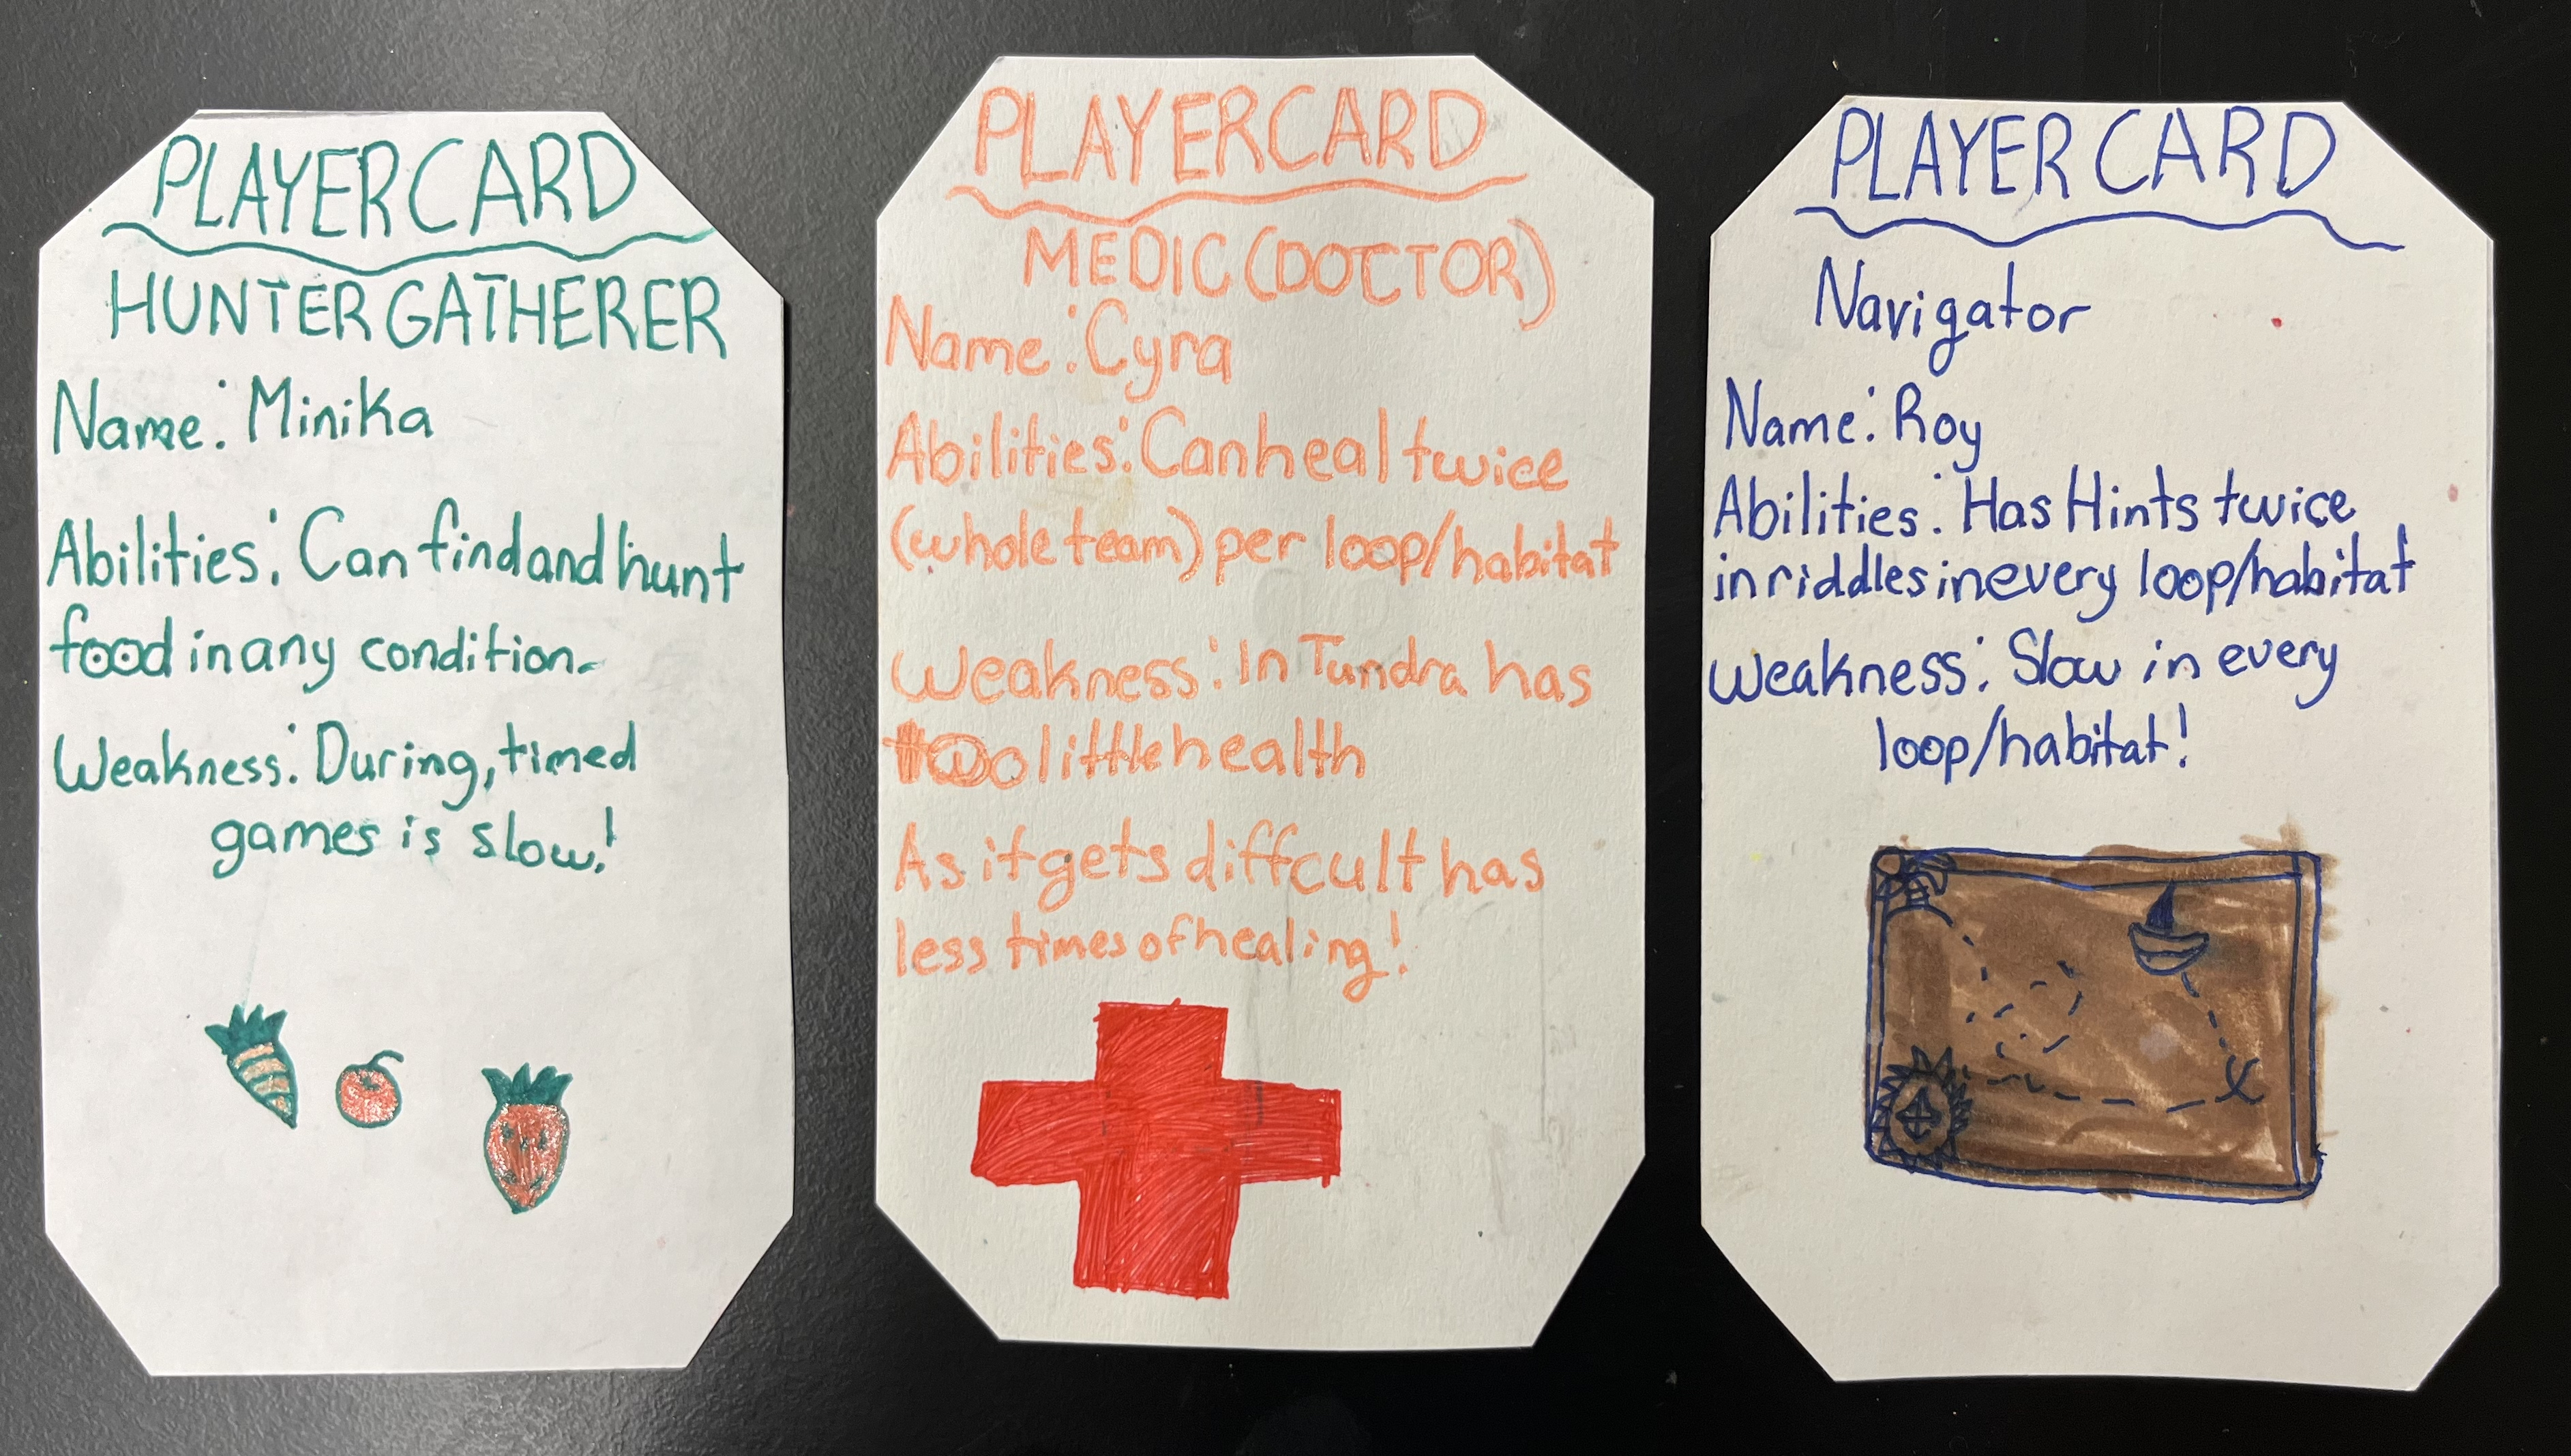 PLAYER CARD
HUNTER GATHERER
Name: Minika
Abilities: Can find and hunt
food in any condition.
Weakness: During, timed
games is slow!
PLAYER CARD
MEDIC (DOCTOR)
Name: Cyra
Abilities: Can heal twice
(whole team) per loop/habitat
Weakness: In Tundra has
too little health
As it gets diffcult has
less times of healing!
PLAYER CARD
Navigator
Name: Roy
Abilities: Has Hints twice
in riddles in every loop/habitat
Weakness: Slow in every
loop/habitat!